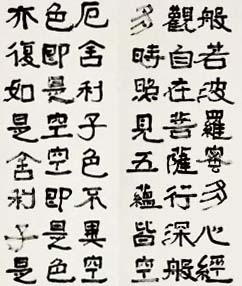 般若波羅蜜多心經
觀自在菩薩行深般
多時照見五蘊皆空
厄舍利子色不異空
色即是空空即是色
亦復如是舍利子是